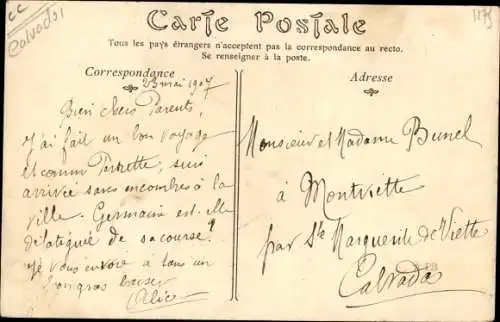 CC
Calvados
1275
Carte Postale
Tous les pays étrangers n'acceptent pas la correspondance au recto.
Se renseigner à la poste.
Correspondance
Adresse
23 mai 1907
Bien chers Parents,
J'ai fait un bon voyage
et comm Parrette, suis
arrivée sans encombres à la
ville. Germain est-elle
défatiguée de sa course?
Je vous envoie à tous un
bon gros baiser
Alice
Monsieur et Madame Bunel
à Montviette
par Ste Marguerite de Viette
Calvados